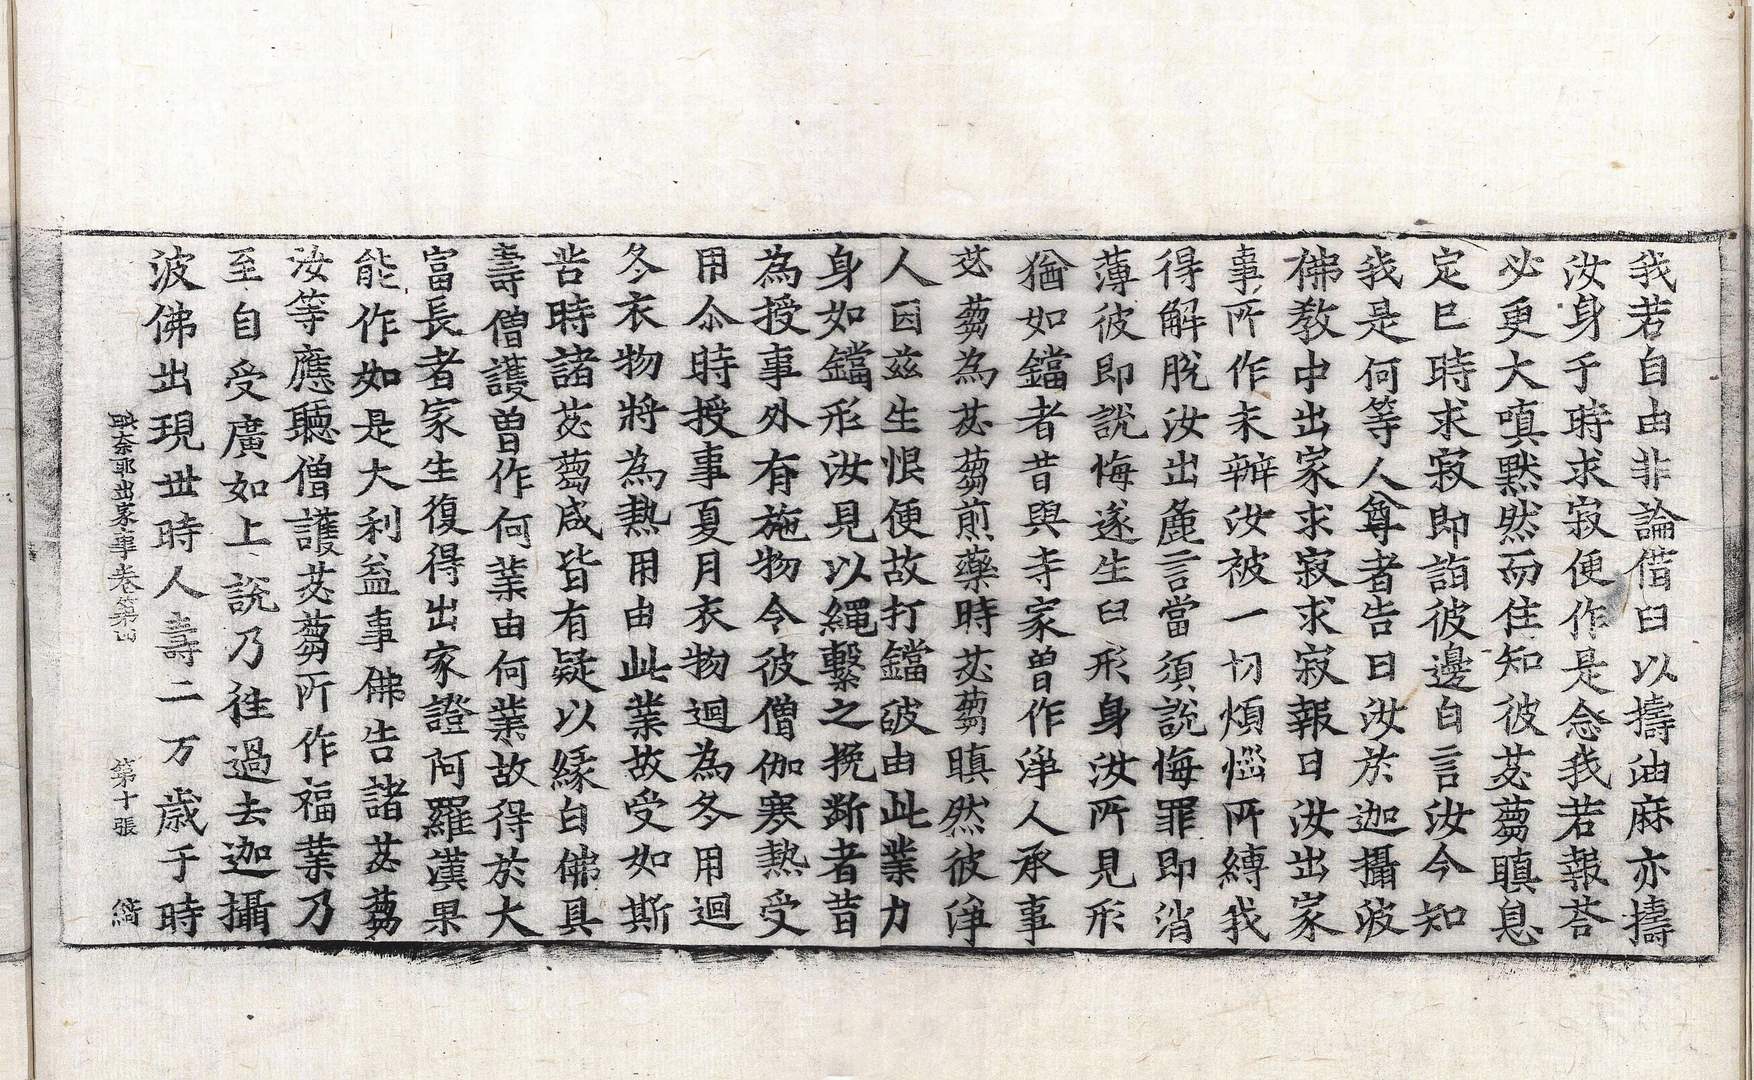 我若自由非論借臼以擣油麻亦擣
汝身于時求寂便作是念我若報荅
必更大嗔黙然而住知彼苾蒭瞋息
定已時求寂即詣彼邊白言汝今知
我是何等人尊者告曰汝於迦攝波
佛教中出家求寂求寂報曰汝出家
事所作未辦汝被一切煩惱所縛我
得解脫汝出麁言當須說悔罪即消
薄彼即說悔遂生臼形身汝所見形
猶如鐺者昔與寺家曽作淨人承事
苾蒭為苾蒭煎藥時苾蒭瞋然彼淨
人因茲生恨便故打鐺破由此業力
身如鐺形汝見以繩繫之挽斷者昔
為授事外有施物令彼僧伽寒熱受
用尒時授事夏月衣物迴為冬用迴
冬衣物將為熱用由此業故受如斯
苦時諸苾蒭咸皆有疑以緣白佛具
壽僧護曽作何業由何業故得於大
富長者家生復得出家證阿羅漢果
能作如是大利益事佛告諸苾蒭
汝等應聽僧護苾蒭所作福業乃
至自受廣如上說乃往過去迦攝
波佛出現世時人壽二万歲于時
毗奈耶出家事卷第四 第十張 縞